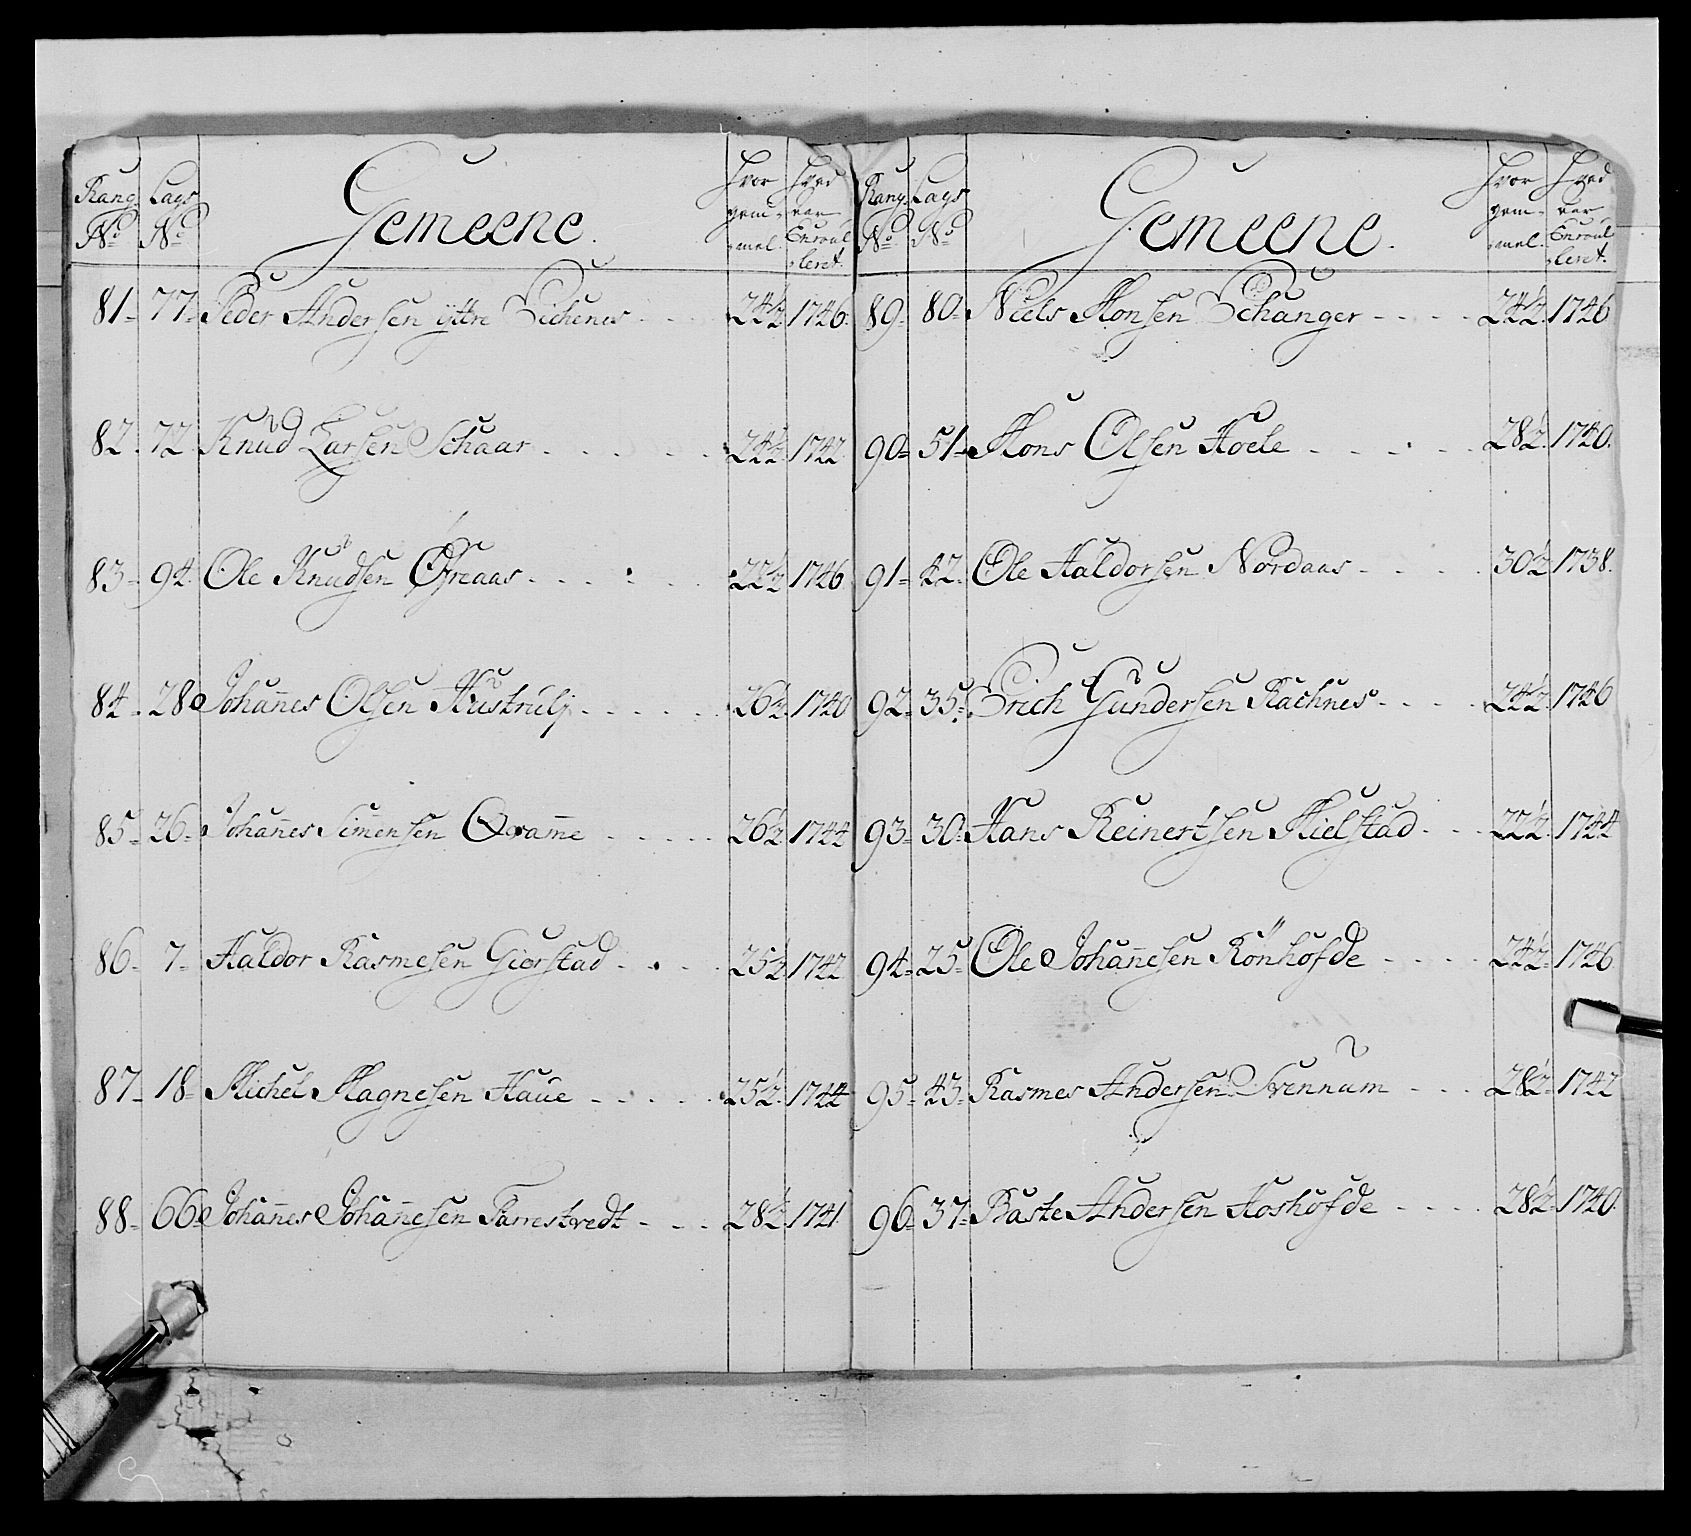 Rang Nº Lags Nº Gemeene. Hvor gam=mel. Hvad aar Enroul=leret.
81- 77- Peder Andersen ÿttre Eichenes - - - 24½ 1746.
82- 72 Knud Larsen Schaar - - - - - 24½ 1742.
83- 94. Ole Knudsen Øfreaas - - - - - 22½ 1746.
84- 28 Johan̄es Olsen - - - - - 26½ 1740
85- 26- Johan̄es Simensen Qvam̄e - - - - - 26½ 1744
86- 7- Haldor Rasmesen Gierstad - - - - 25½ 1742
87- 18- Michel Magnesen Haue - - - - - 25½ 1744
88- 66 Johan̄es Johan̄esen - - - 28½ 1741.
Rang Nº Lags Nº Gemeene. Hvor gam=mel. Hvad aar Enroul=leret.
89- 80- Niels Monsen Echanger - - - - 24½ 1746
90- 51- Mons Olsen Hoele - - - - - 28½ 1740.
91- 42- Ole Haldorsen Nordaas - - - - 30½ 1738.
92- 35- Erich Gundersen Rachnes - - - - 24½ 1746
93- 30- Hans Reinertsen Mielstad - - - 22½ 1744
94- 25- Ole Johan̄esen Rönhofde - - - - 24½ 1746
95- 43- Rasmes Andersen Svennum - - - 28½ 1742
96- 37- Baste Andersen Hoshofde - - - - 28½ 1740.